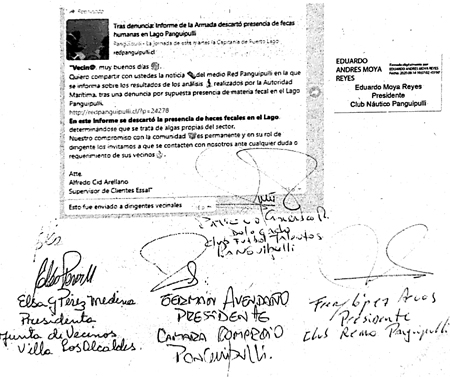 Reenviado
Tras denuncia: Informe de la Armada descartó presencia de fecas
humanas en Lago Panguipulli
Panguipulli - La jornada de este martes la Capitanía de Puerto Lago
redpanguipulli.cl
"Vecin@ muy buenos días
Quiero compartir con ustedes la noticia del medio Red Panguipulli en la que
se informa sobre los resultados de los análisis realizados por la Autoridad
Marítima, tras una denuncia por supuesta presencia de materia fecal en el Lago
Panguipulli.
http://redpanguipulli.cl/?p=24278
En este informe se descartó la presencia de heces fecales en el Lago,
determinándose que se trata de algas propias del sector.
Nuestro compromiso con la comunidad es permanente y en su rol de
dirigente los invitamos a que se contacten con nosotros ante cualquier duda o
requerimiento de sus vecinos
Atte.
Alfredo Cid Arellano
Supervisor de Clientes Essal"
Esto fue enviado a dirigentes vecinales
EDUARDO
ANDRES MOYA
REYES
Eduardo Moya Reyes
Presidente
Club Náutico Panguipulli
Delegado
Club Futbol Talentos
Panguipulli
Elsa G Pérez Medina
Presidenta
Junta de Vecinos
Villa Los Alcaldes.
GERMAN AVENDAÑO
PRESIDENTE
CAMARA COMERCIO
PANGUIPULLI.
Fran López
Presidente
Club Remo Panguipulli